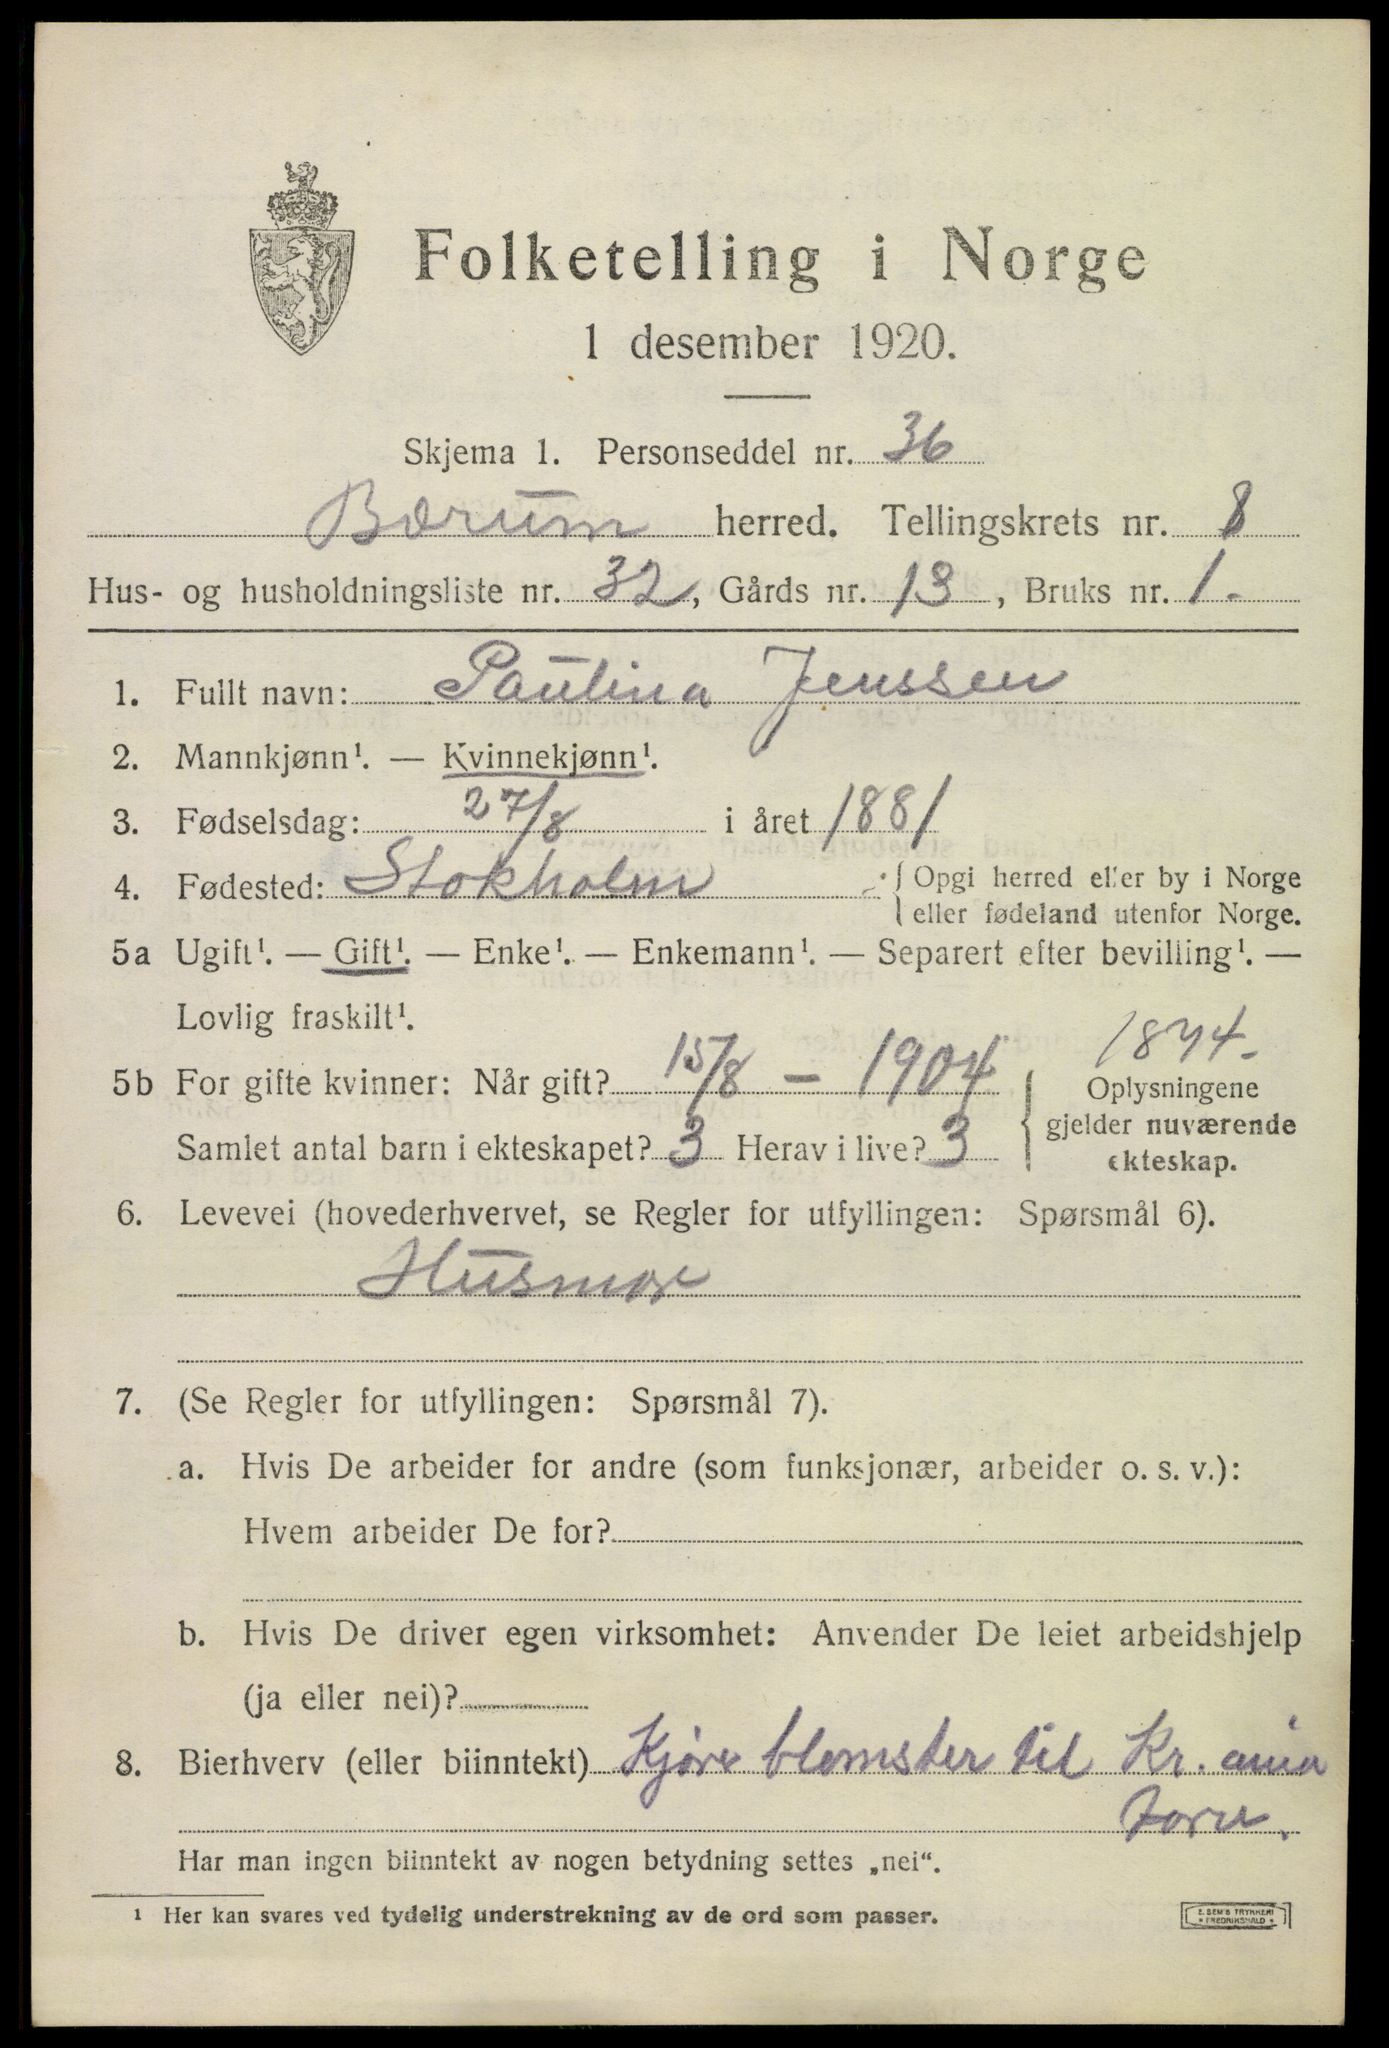 Folketelling i Norge
1 desember 1920.
Skjema 1. Personseddel nr. 36
Bærum herred. Tellingskrets nr. 8
Hus- og husholdningsliste nr. 32, Gårds nr. 13, Bruks nr. 1.
1. Fullt navn: Paulina Jenssen
2. Mannkjønn¹. — Kvinnekjønn¹.
3. Fødselsdag: 27/8 i året 1881
4. Fødested: Stokholm { Opgi herred eller by i Norge
eller fødeland utenfor Norge.
5a Ugift¹. — Gift¹. — Enke¹. — Enkemann¹. — Separert efter bevilling¹. —
Lovlig fraskilt¹.
1874.
5b For gifte kvinner: Når gift? 15/8 – 1904 { Oplysningene
gjelder nuværende
ekteskap.
Samlet antal barn i ekteskapet? 3 Herav i live? 3
6. Levevei (hovederhvervet, se Regler for utfyllingen: Spørsmål 6).
Husmor
7. (Se Regler for utfyllingen: Spørsmål 7).
a. Hvis De arbeider for andre (som funksjonær, arbeider o. s. v.):
Hvem arbeider De for?
b. Hvis De driver egen virksomhet: Anvender De leiet arbeidshjelp
(ja eller nei)?
8. Bierhverv (eller biinntekt) Kjøre blomster til Kr. ania
torv.
Har man ingen biinntekt av nogen betydning settes „nei“.
¹ Her kan svares ved tydelig understrekning av de ord som passer.
E. SEM'S TRYKKERI
* FREDRIKSHALD *